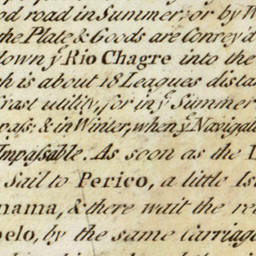 od road in Summer, or by W
the Plate & Goods are Convey'd
down yͤ Rio Chagre into the
h is about 18 Leagues dista
Great utility, for in yͤ Summer
vass: & in Winter, when yͤ Navigatio
Impassable. As soon as the
Sail to Perico, a little Is
nama, & there wait the re
belo, by the same Carriage